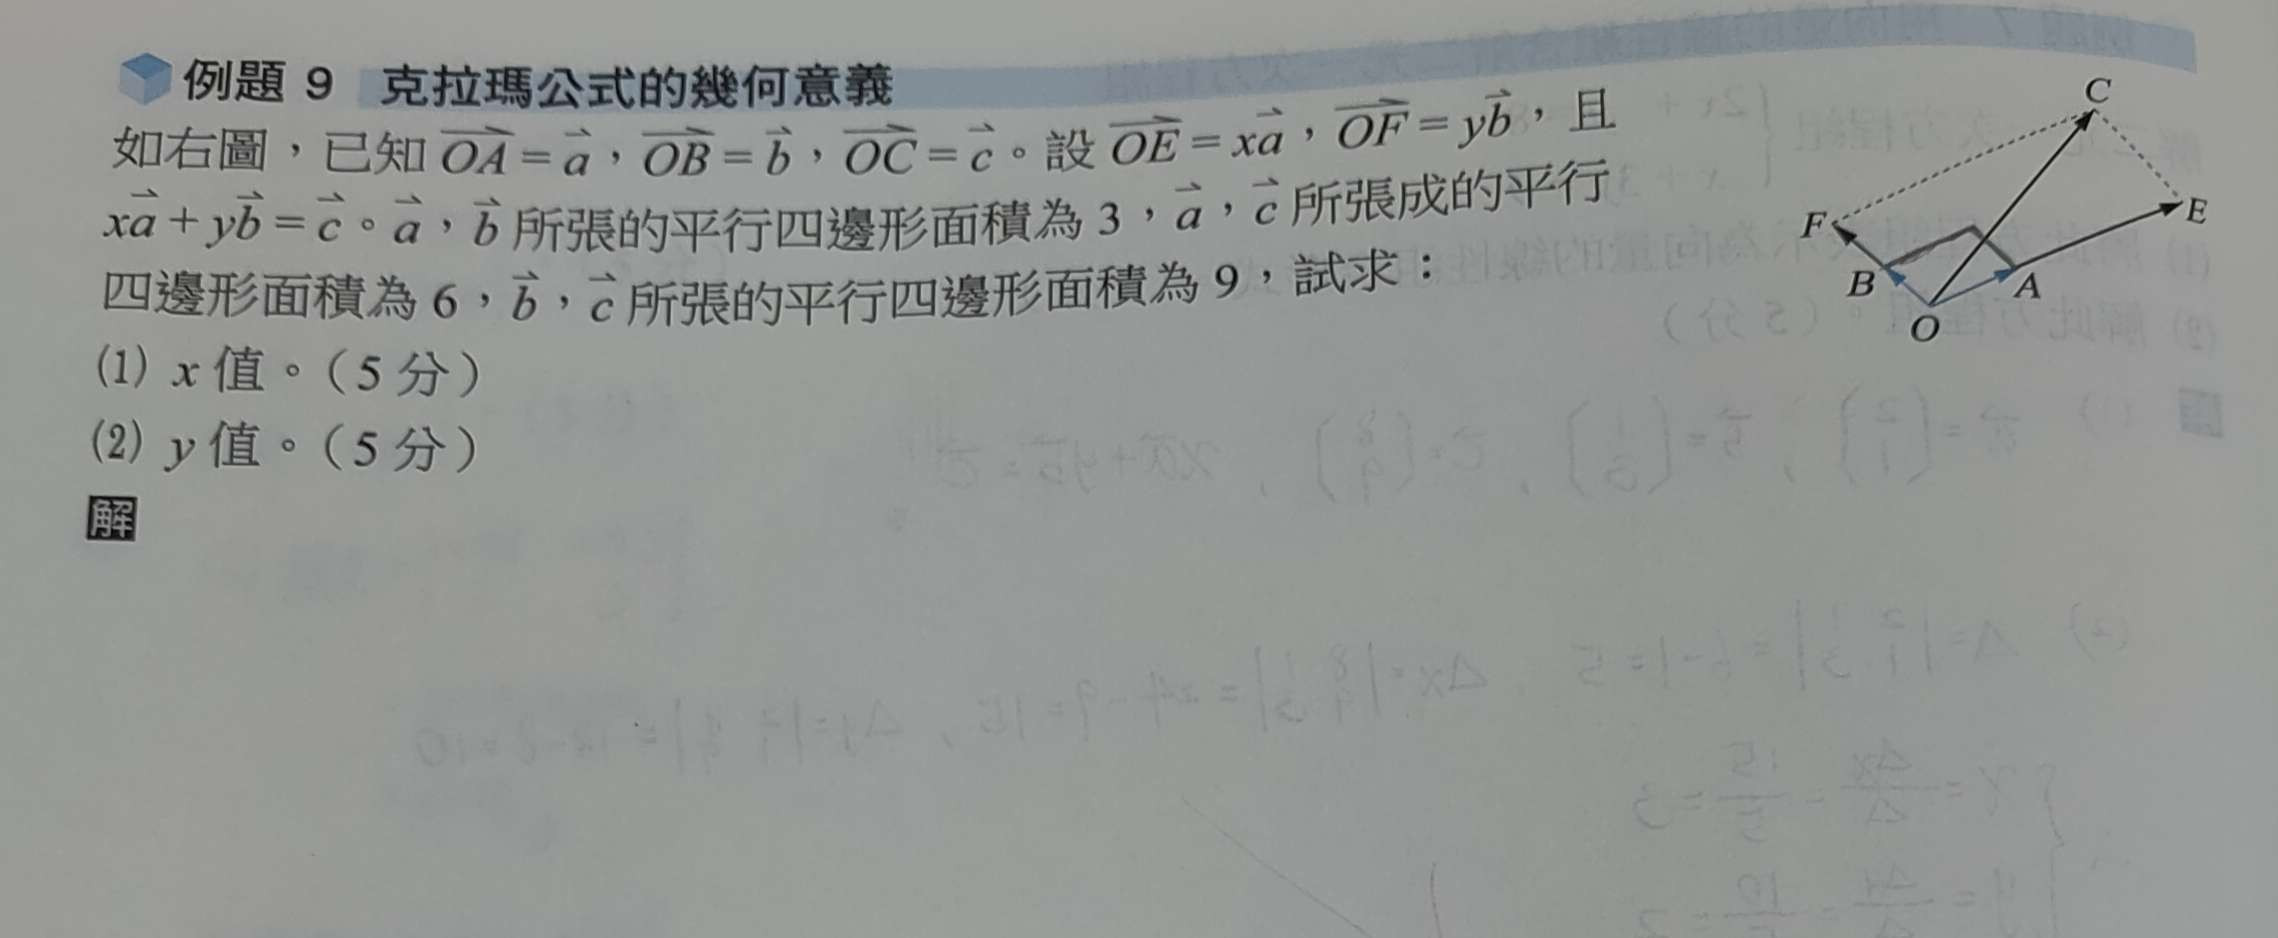 例題 9 克拉瑪公式的幾何意義
如右圖，已知 $\overrightarrow{OA}=\vec{a}$，$\overrightarrow{OB}=\vec{b}$，$\overrightarrow{OC}=\vec{c}$。設 $\overrightarrow{OE}=x\vec{a}$，$\overrightarrow{OF}=y\vec{b}$，且
$x\vec{a}+y\vec{b}=\vec{c}$。$\vec{a}$，$\vec{b}$ 所張的平行四邊形面積為 3，$\vec{a}$，$\vec{c}$ 所張成的平行
四邊形面積為 6，$\vec{b}$，$\vec{c}$ 所張的平行四邊形面積為 9，試求：
(1) x 值。（5 分）
(2) y 值。（5 分）
解
C
F
E
B
A
O